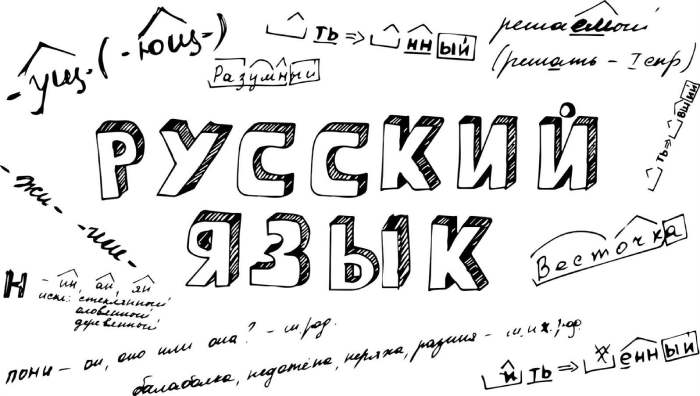 -ущ- (-ющ-)
ть ⇒ нный
решаемый
(решать – I спр)
Разумный
ть ⇒ вший
РУССКИЙ
ЯЗЫК
- жи - ши -
Весточка
Н - ин, ан, ян
искл: стеклянный
оловянный
деревянный
пони – он, оно или она? – м.род.
балаболка, недотёпа, неряха, разиня – м. и ж. род.
и ть ⇒ енный